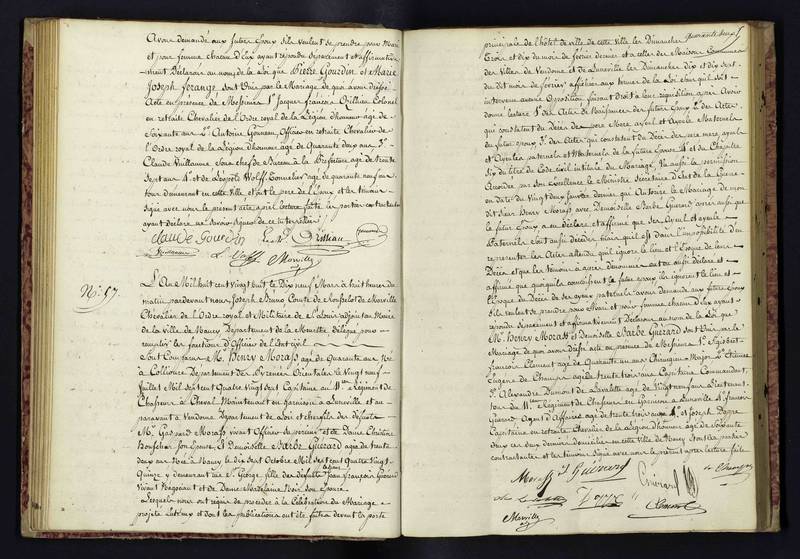 Avons demandé aux futurs Epoux s'ils veulent se prendre pour Mari
et pour femme chacun d'eux ayant répondu séparément et affirmative-
ment Déclarons au nom de la Loi que Pierre Gourdin et Marie
Joseph Forange sont unis par le Mariage de quoi avons dressé
Acte en présence de Messieurs Jacques François Colonel
en retraite Chevalier de l'Ordre royal de la Légion d'honneur âgé de
Soixante ans 2° Antoine Officier en retraite Chevalier de
l'Ordre royal de la Légion d'honneur âgé de Quarante deux ans 3°
Claude Vuillaume Sous chef de Bureau à la Préfecture âgé de trente
Sept ans 4° et de Léopold Wolff Tonnelier âgé de quarante neuf ans
tous demeurant en cette Ville et ont le père de l'Epoux et les témoins
signé avec nous le présent acte après lecture faite les parties contractantes
ayant déclaré ne savoir signer de ce interpellées
Claude Gourdin
L. Wolff
Morville
N° 57.
L'An Mil huit cent vingt huit le Dix neuf Mars à huit heures du
matin pardevant nous Joseph Comte de Rousselot de Morville
Chevalier de l'Ordre royal et Militaire de St Louis adjoint au Maire
de la Ville de Nancy Département de la Meurthe délégué pour
remplir les fonctions d'Officier de l'état civil
Sont Comparus M. Henry Morass âgé de Quarante ans né
à Collioure Département des Pyrénées Orientales le Vingt neuf
Juillet Mil sept cent Quatre Vingt sept Capitaine au 11me Régiment de
Chasseurs à Cheval Maintenant en garnison à Lunéville et au
paravant à Vendome Département de Loir et cher fils des défunts
M. Gaspard Morass vivant Officier de et de Dame Christine
son Epouse, Et Demoiselle Barbe Guérard âgée de trente
deux ans Née à Nancy le dix sept Octobre Mil sept cent Quatre Vingt
Quinze y demeurant rue St George fille des défunts Jean François Guérard
Vivant Négociant et de Dame Madelaine son Epouse
Lesquels nous ont requis de procéder à la Célébration du Mariage
projeté entr'eux et dont les publications ont été faites devant la porte
Quarante deux
principale de l'hôtel de ville de cette Ville les Dimanches
Trois et dix du mois de février dernier et à celles des Maisons Communes
des Villes de Vendome et de Lunéville les Dimanches dix et dix sept
du dit mois de février affichées aux termes de la Loi sans qu'il soit
intervenu aucune Opposition faisant droit à leur réquisition après Avoir
donné lecture 1° des Actes de Naissances des futurs Epoux 2° des Actes
qui constatent les Décès des père Mère ayeul et Ayeule Maternels
du futur Epoux 3° des Actes qui constatent les Décès des père mère, ayeuls
et Ayeules paternels et Maternels de la future Epouse 4° et du Chapitre
Six du titre du Code civil intitulé du Mariage, Vu aussi la permission
Accordée par son Excellence le Ministre Secrétaire d'Etat de la Guerre
en date du Vingt deux Janvier dernier qui Autorise le Mariage de mon
dit Sieur Henry Morass avec Demoiselle Barbe Guérard ainsi que
le futur Epoux a déclaré et affirmé que ses Ayeul et ayeule
Paternels sont aussi décédés mais qu'il est dans l'impossibilité d'en
représenter les Actes attendu qu'il ignore le lieu et l'Epoque de leurs
Décès et que les témoins ont aussi déclaré et
affirmé que quoiqu'ils connoissent le futur Epoux ils ignorent le lieu et
l'Epoque du Décès de ses ayeux paternels avons demandé aux futurs Epoux
s'ils veulent se prendre pour Mari et pour femme chacun d'eux ayant
répondu séparément et affirmativement Déclarons au nom de la Loi que
M. Henry Morass et Demoiselle Barbe Guérard sont unis par le
Mariage de quoi avons dressé acte en présence de Messieurs
François Clément âgé de Quarante un ans Chirurgien Major 2° Etienne
Eugène de Champs âgé de trente trois ans Capitaine Commandant
3° Alexandre Dumont de Lavalette âgé de Vingt neuf ans Lieutenant
tous du 11me Régiment de Chasseurs en Garnison à Lunéville 4° François
Guérard Agent d'Affaires âgé de trente trois ans et 4° Joseph Doppe
Capitaine en retraite Chevalier de la Légion d'honneur âgé de Soixante
deux ces deux derniers domiciliés en cette Ville de Nancy et ont les parties
contractantes et les témoins signé avec nous le présent après lecture faite
Morass B Guérard
Guérard
de Champs
Doppe
Clement
Morville